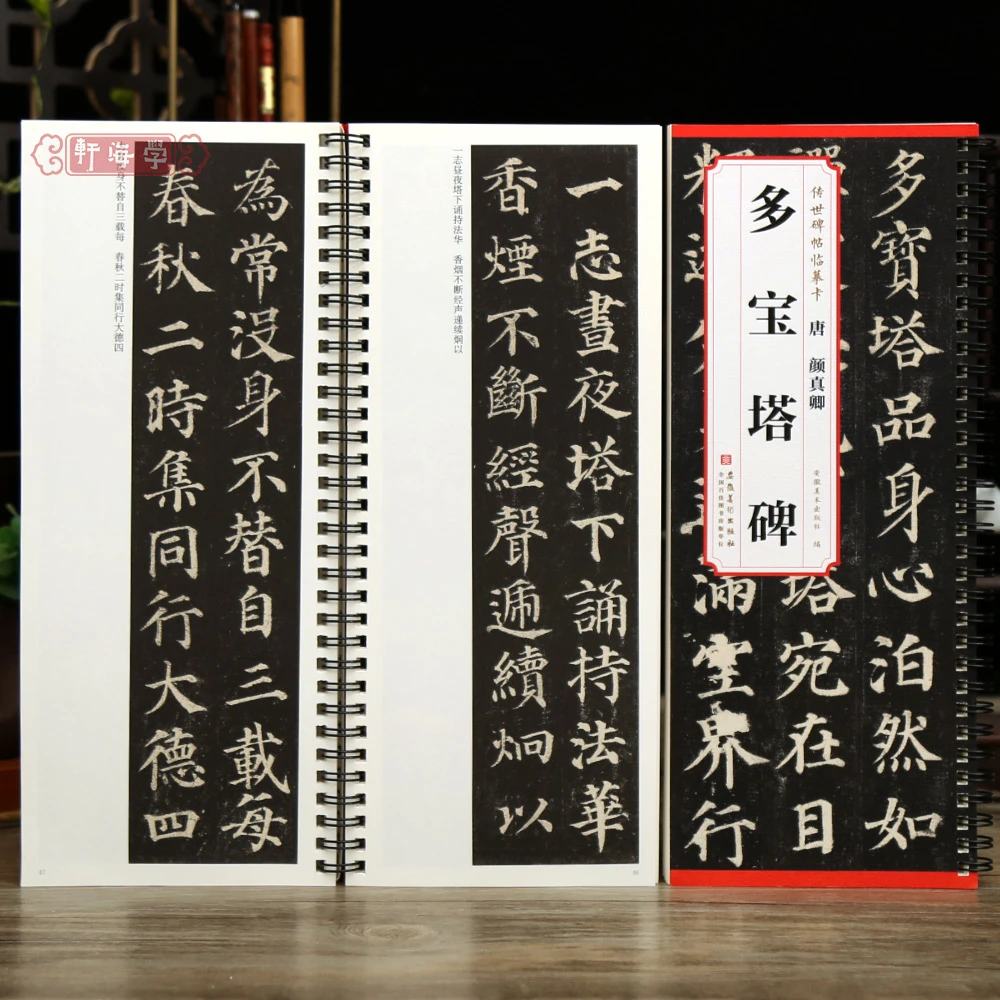 軒海学
為常没身不替自三載每
春秋二時集同行大德四
为常没身不替自三载每 春秋二时集同行大德四
67
一志晝夜塔下誦持法華
香煙不斷經聲遞續炯以
一志昼夜塔下诵持法华 香烟不断经声递续炯以
66
多寶塔品身心泊然如
塔宛在目
滿空界行
传世碑帖临摹卡
唐 颜真卿
安徽美术出版社 编
多宝塔碑
安徽美术出版社
全国百佳图书出版单位